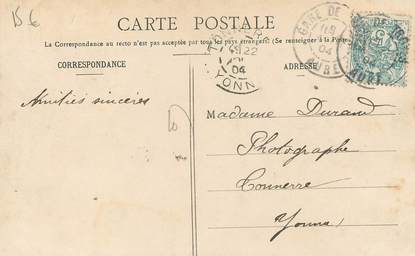 15 €
CARTE POSTALE
La Correspondance au recto n'est pas acceptée par tous les pays étrangers. (Se renseigner à la Poste)
CORRESPONDANCE
ADRESSE
GARE DE
04
AUBE
22
04
YONNE
Amitiés sincères
Madame Durand
Photographe
Tonnerre
Yonne